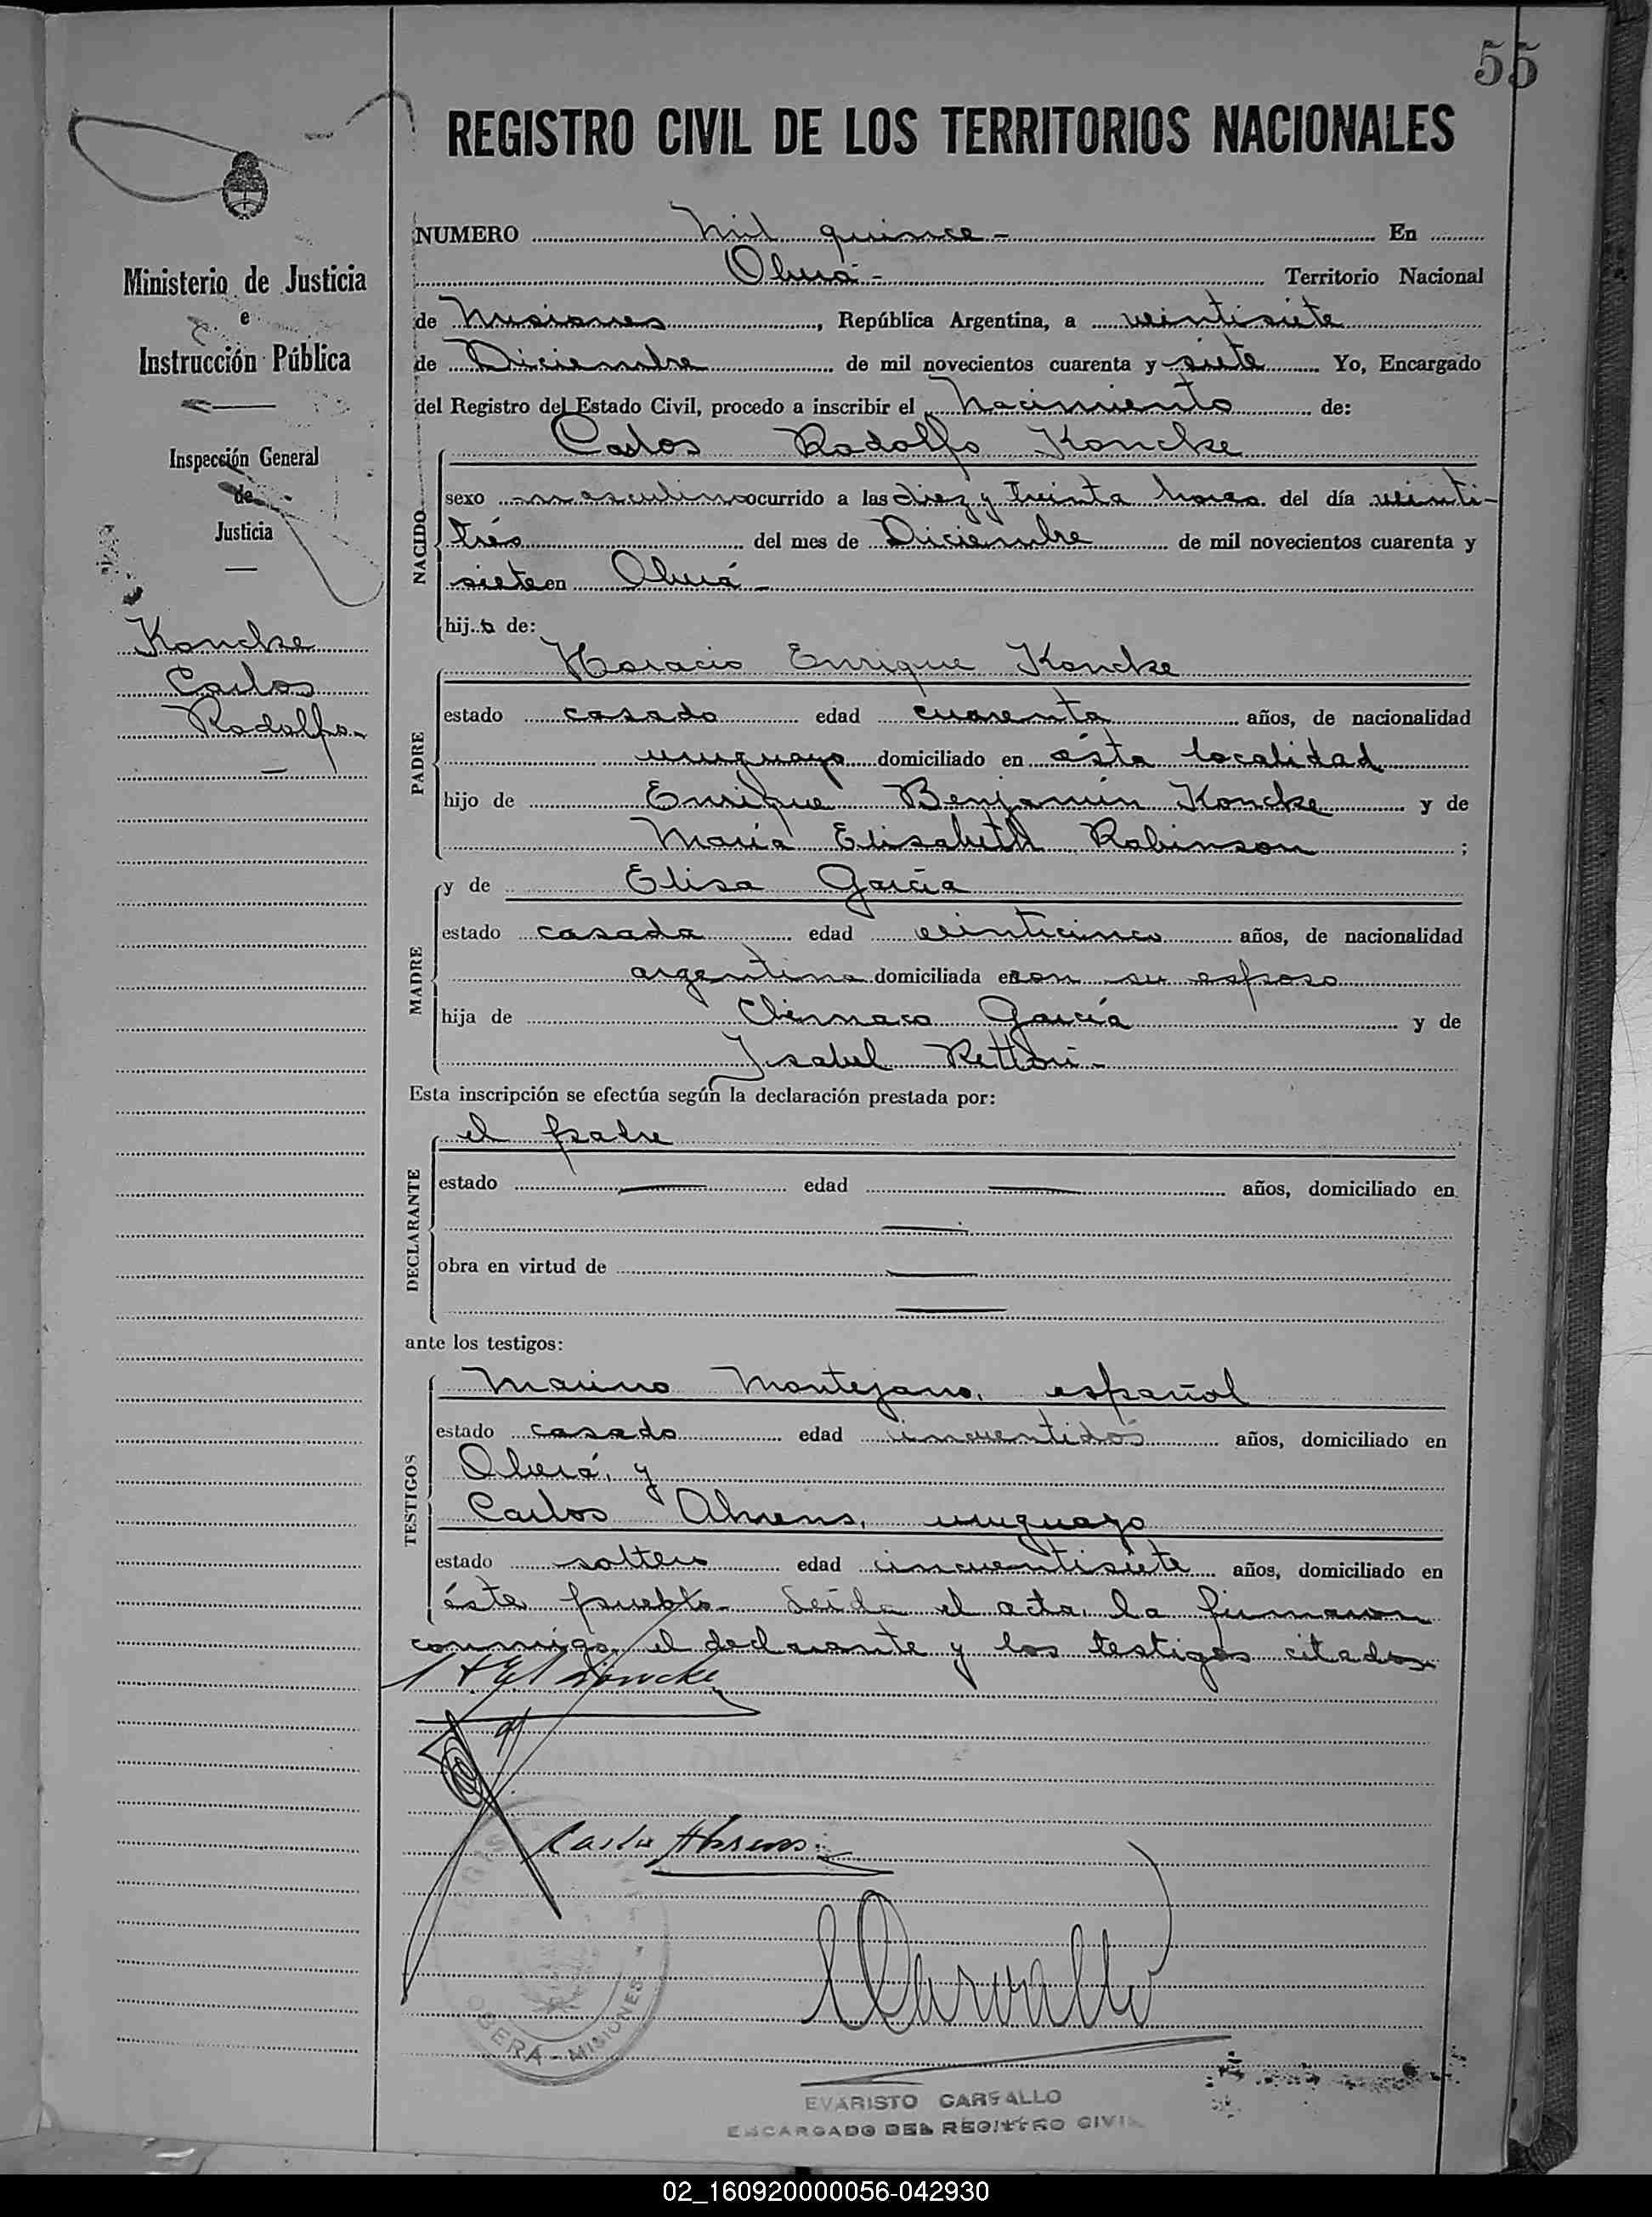 55
REGISTRO CIVIL DE LOS TERRITORIOS NACIONALES
Ministerio de Justicia
e
Instrucción Pública
Inspección General
de
Justicia
Koncke
Carlos
Rodolfo.-
NUMERO Mil quince - En
Oberá - Territorio Nacional
de Misiones, República Argentina, a veintisiete
de Diciembre de mil novecientos cuarenta y siete Yo, Encargado
del Registro del Estado Civil, procedo a inscribir el Nacimiento de:
NACIDO
Carlos Rodolfo Koncke
sexo masculino ocurrido a las diez y treinta horas del día veinti-
trés del mes de Diciembre de mil novecientos cuarenta y
siete en Oberá -
hijo de:
PADRE
Horacio Enrique Koncke
estado casado edad cuarenta años, de nacionalidad
uruguayo domiciliado en ésta localidad
hijo de Enrique Benjamín Koncke y de
María Elisabeth Robinson ;
MADRE
y de Elisa García
estado casada edad veinticinco años, de nacionalidad
argentina domiciliada en con su esposo
hija de Climaco García y de
Isabel Rettori -
Esta inscripción se efectúa según la declaración prestada por:
DECLARANTE
el padre
estado — edad — años, domiciliado en
—
obra en virtud de —
—
ante los testigos:
TESTIGOS
Marino Montejano, español
estado casado edad cincuentidós años, domiciliado en
Oberá, y
Carlos Ahrens, uruguayo
estado soltero edad cincuentisiete años, domiciliado en
éste pueblo - Leída el acta, la firmaron
conmigo, el declarante y los testigos citados
Koncke
Carlos Ahrens
ECarvallo
OBERÁ - MISIONES -
EVARISTO CARVALLO
ENCARGADO DEL REGISTRO CIVIL
02_160920000056-042930